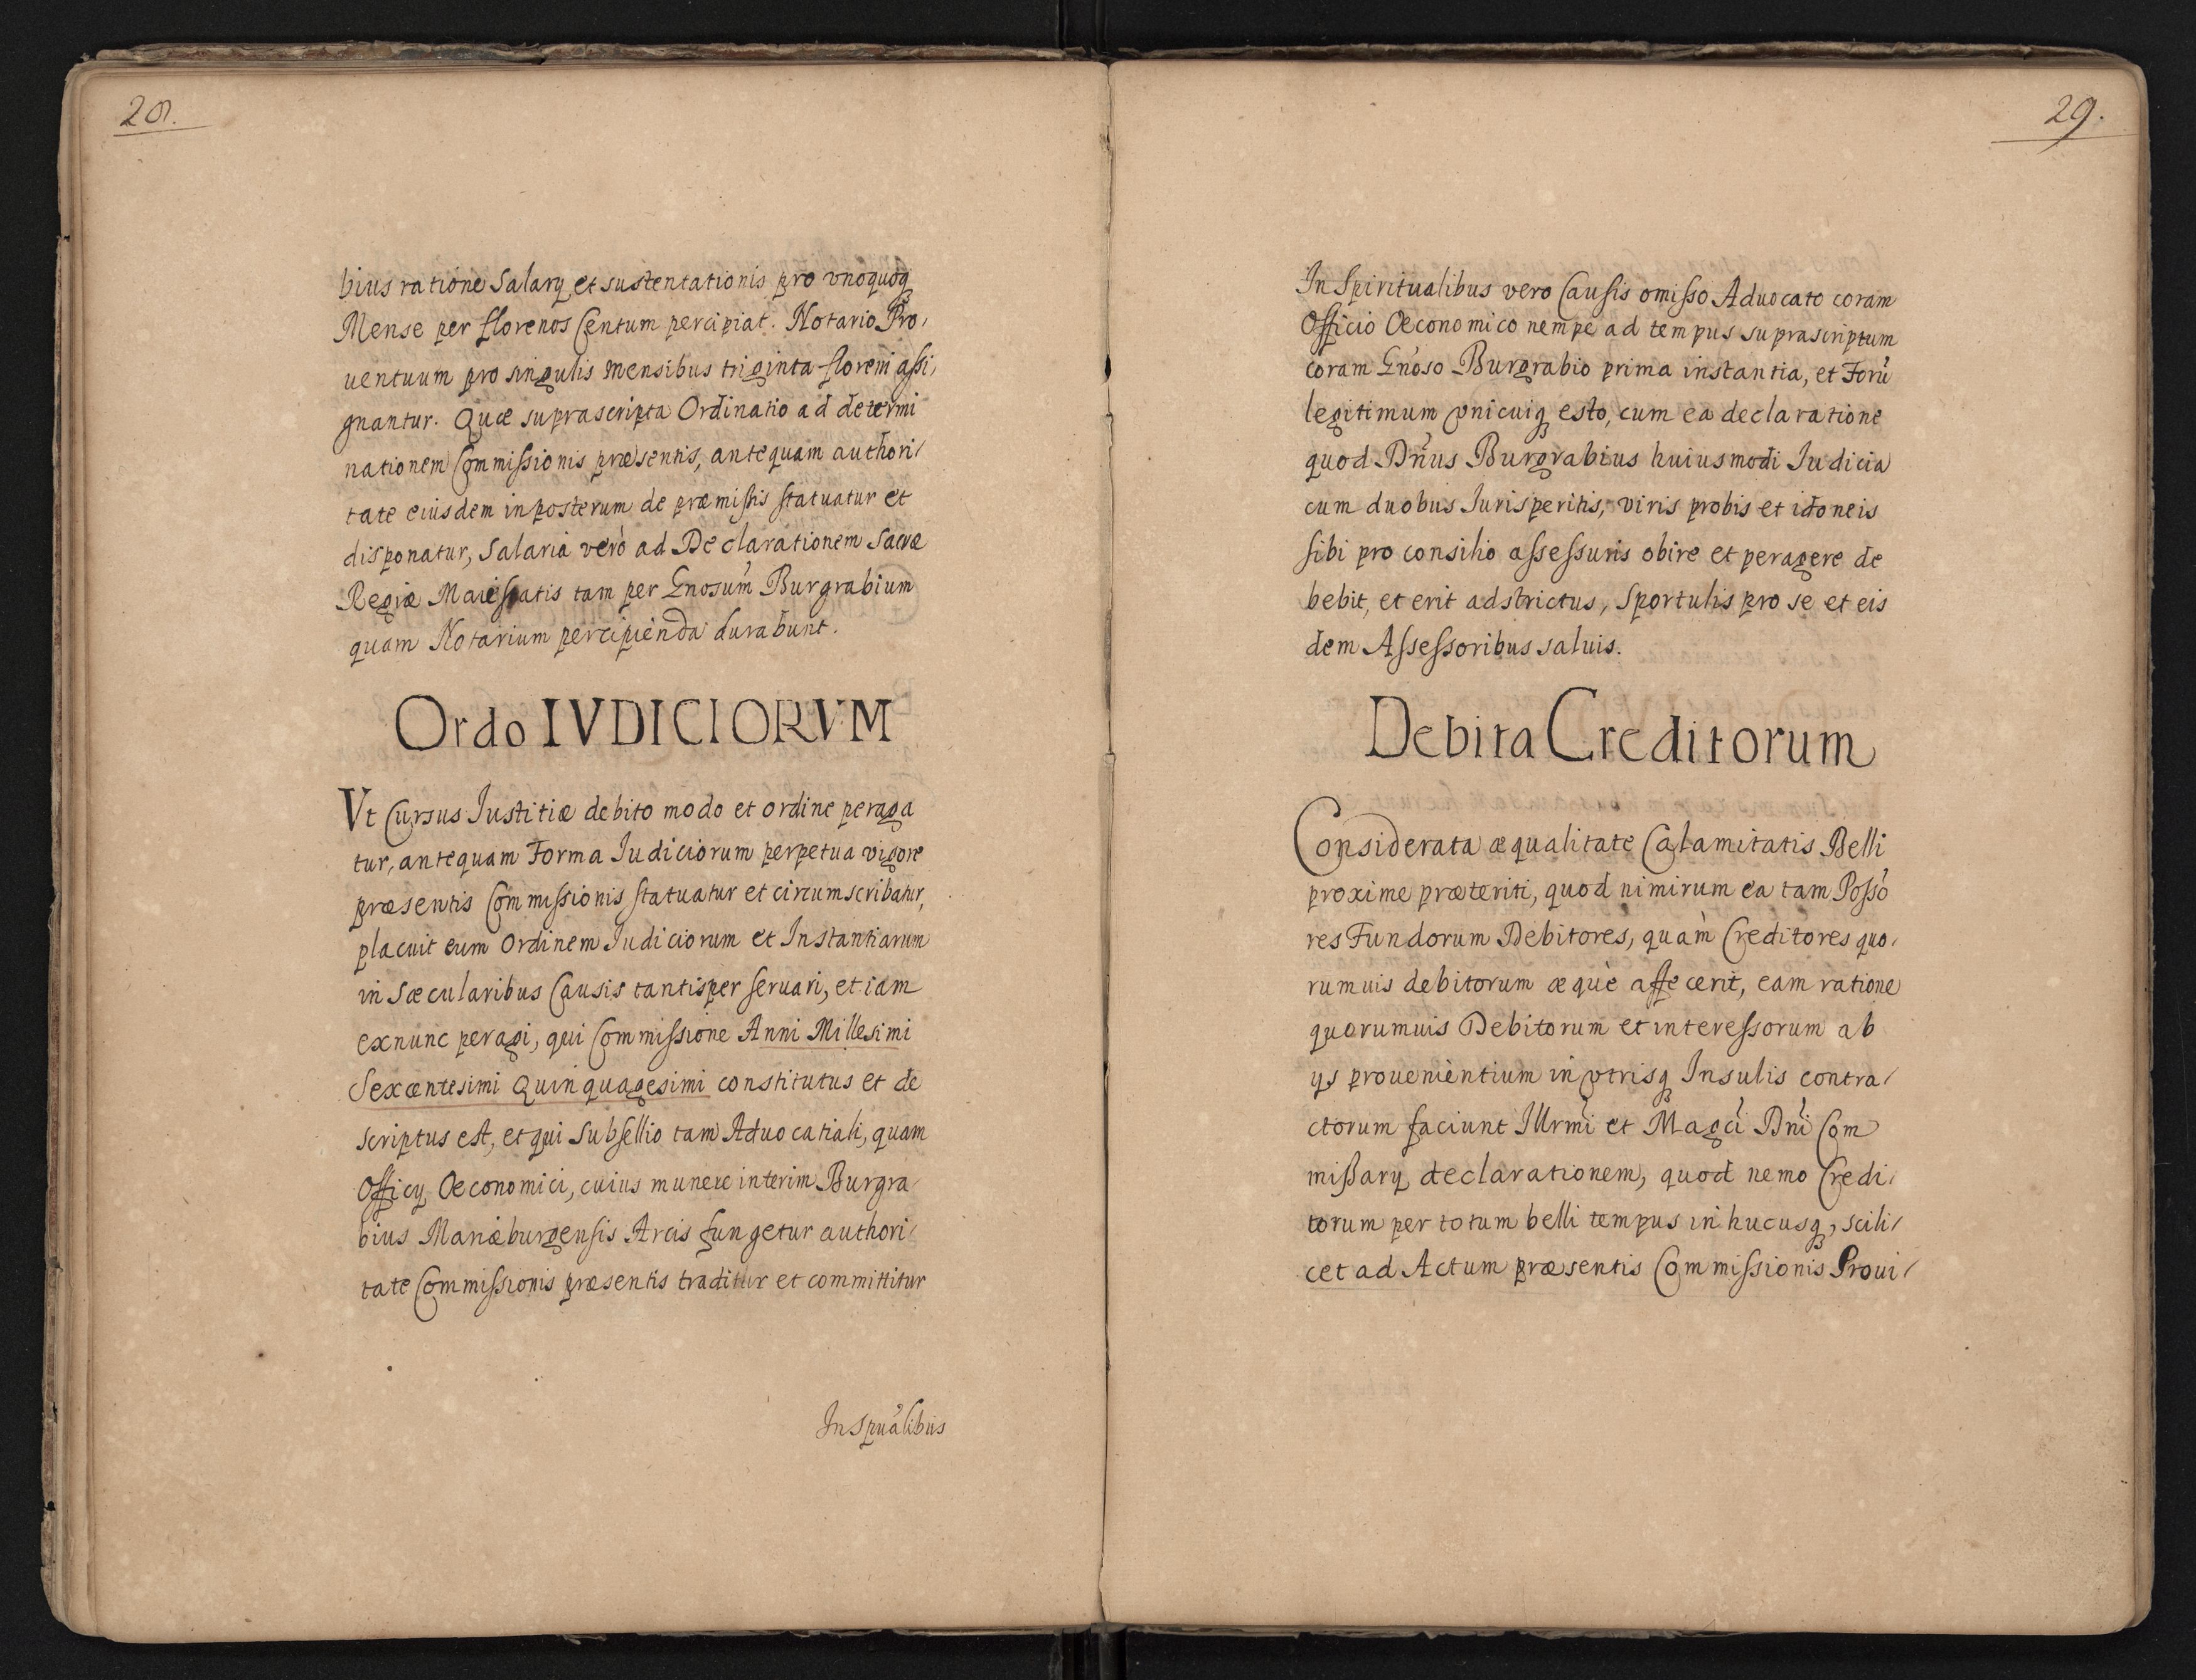 28.
bius ratione Salarÿ et sustentationis pro vnoquoq;
Mense per florenos Centum percipiat. Notario Pro/
uentuum pro singulis mensibus triginta floreni aſsi/
gnantur. Quæ suprascripta Ordinatio ad determi
nationem Commiſsionis præsentis, antequam authori/
tate eiusdem inposterum de præmiſsis ſtatuatur et
disponatur, Salaria verò ad Declarationem Sacræ
Regiæ Maiestatis tam per Gnosum̃ Burgrabium
quam Notarium percipienda durabunt.
Ordo IVDICIORVM
Vt Cursus Iustitiæ debito modo et ordine peraga
tur, antequam Forma Iudiciorum perpetua vigore
præsentis Commiſsionis ſtatuatur et circumscribatur,
placuit eum Ordinem Iudiciorum et Instantiarum
in Sæcularibus Causis tantisper ſeruari, et iam
exnunc peragi, qui Commiſsione Anni Millesimi
Sexcentesimi Quinquagesimi constitutus et de
scriptus est, et qui Subſellio tam Aduocatiali, quam
Officÿ Oeconomici, cuius munere interim Burgra/
bius Mariæburgenſis Arcis fungetur authori/
tate Commiſsionis præsentis traditur et committitur
In Spuãlibus
29.
In Spiritualibus vero Cauſis omiſso Aduocato coram
Officio Oeconomico nempe ad tempus suprascriptum
coram Gnõso Burgrabio prima instantia, et Forũ
legitimum vnicuiq; esto, cum ea declaratione
quod Dñus Burgrabius huiusmodi Iudicia
cum duobus Iurisperitis, viris probis et idoneis
ſibi pro consilio aſseſsuris obire et peragere de
bebit, et erit adstrictus, Sportulis pro se et eis
dem Aſseſsoribus saluis.
Debita Creditorum
Considerata æqualitate Calamitatis Belli
proxime præteriti, quod nimirum ea tam Poſsõ
res Fundorum Debitores, quàm Creditores quo/
rumuis debitorum æquè affecerit, eam ratione
quorumuis Debitorum et intereſsorum ab
ÿs prouenientium in vtrisq; Insulis contra/
ctorum faciunt Illrm̃i et Magc̃i Dñi Com
miſsarÿ declarationem, quod nemo Credi/
torum per totum belli tempus in hucusq;, scili/
cet ad Actum præsentis Commiſsionis Proui/